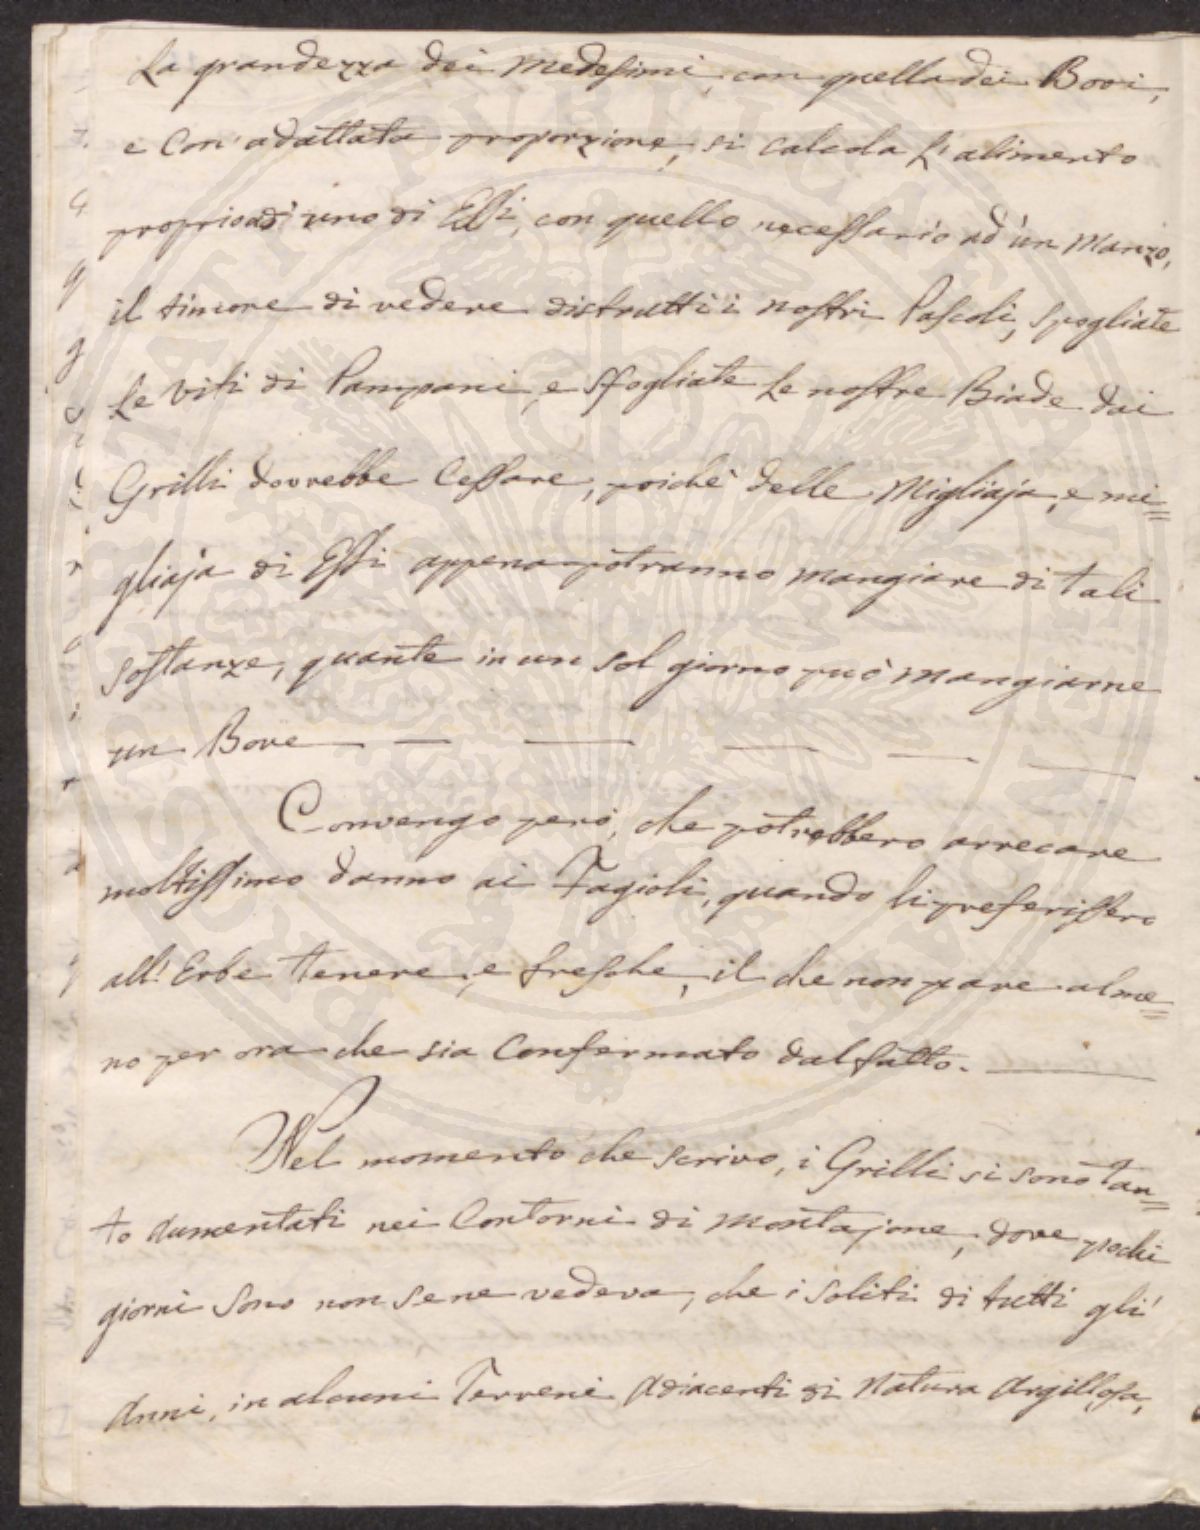 La grandezza dei Medesimi, con quella dei Bovi,
e con' adattata proporzione, si calcola l'alimento
proprio di uno di Essi, con quello necessario ad un Manzo,
il timore di vedere distrutti i nostri Pascoli, spogliate
le Viti di Pampani, e sfogliate le nostre Biade dai
Grilli dovrebbe cessare, poichè delle Migliaja, e mi=
gliaja di Essi appena potranno mangiare di tali
sostanze, quante in un sol giorno può mangiarne
un Bove
Convengo però, che potrebbero arrecare
moltissimo danno ai Fagioli, quando li preferissero
all' Erbe tenere, e fresche, il che non pare alme=
no per ora che sia confermato dal fatto.
Nel momento che scrivo, i Grilli si sono tan=
to aumentati nei Contorni di Montajone, dove pochi
giorni sono non se ne vedeva, che i soliti di tutti gli'
Anni, in alcuni Terreni Adiacenti di Natura Argillosa,